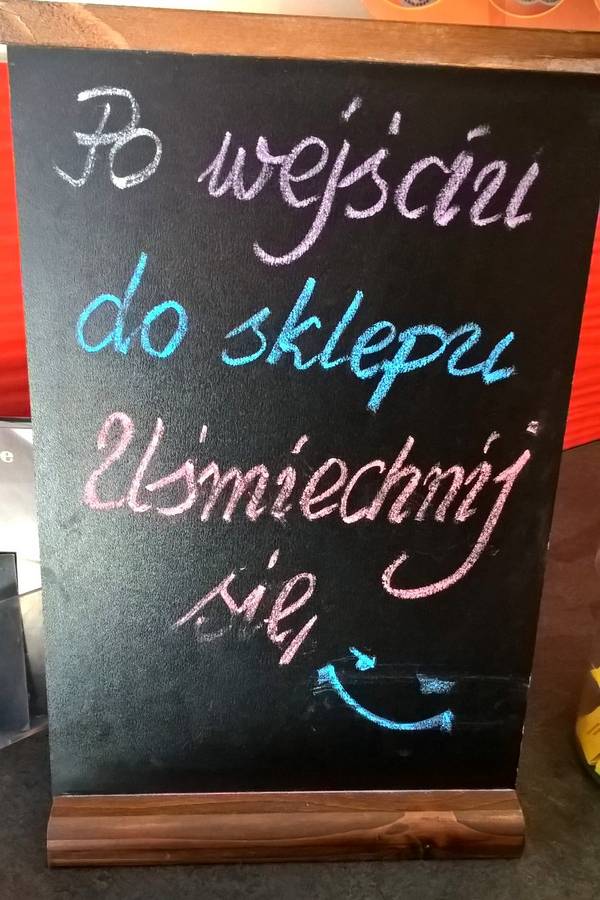 Po wejściu
do sklepu
Uśmiechnij
się